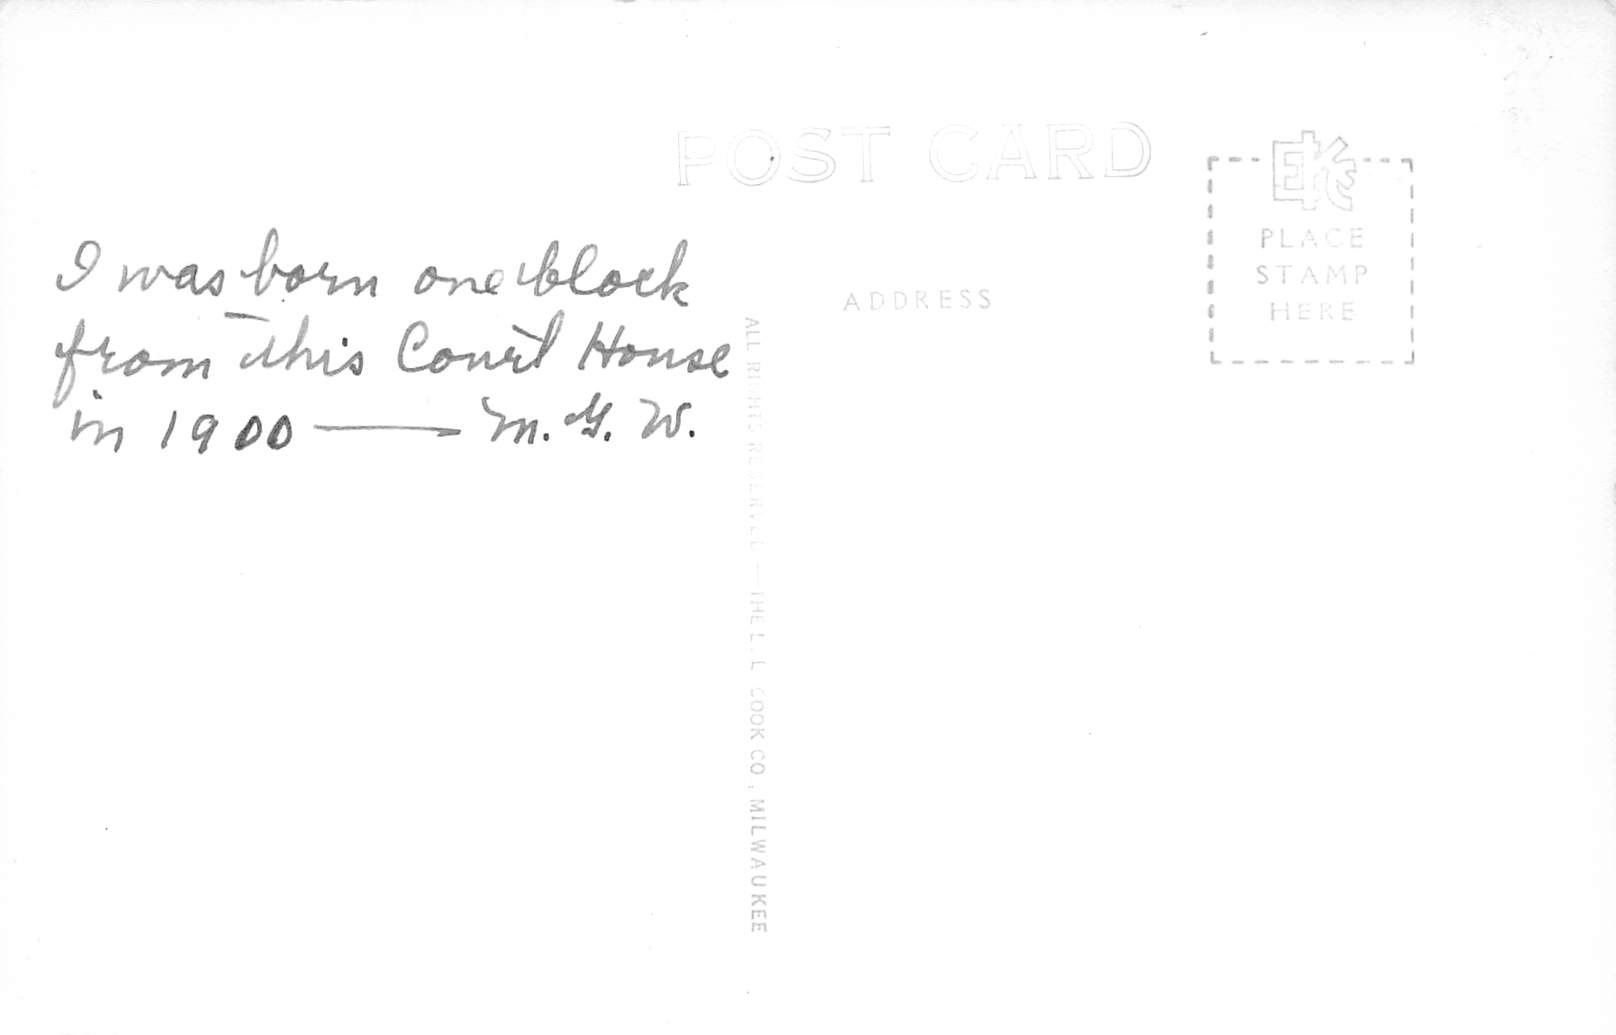 POST CARD
EKC
PLACE
STAMP
HERE
ADDRESS
I was born one block
from this Court House
in 1900 — M. G. W.
ALL RIGHTS RESERVED — THE L. L. COOK CO., MILWAUKEE